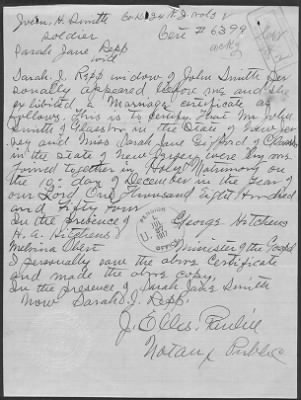 John H. Smith Co. D 24 N.J. Vols
Soldier Cert # 6399
Sarah Jane Repp
Sarah. J. Repp widow of John Smith Per
sonally appeared before me and she
exhibited a Marriage certificate as
follows. This is to certify that Mr John
Smith of Glassboro in the State of New Jer
sey and Miss Sarah Jane Gifford of
in the State of New Jersey were by me
Joined together in Holy Matrimony on
the day of December in the year of
our Lord One thousand eight Hundred
and fifty four
In the presence of George Hitchens
H. A. Hitchens Minister of the Gospel
U.S. PENSION OFFICE
I personally saw the above Certificate
and made the above copy.
In the presence of Sarah Jane Smith
Now Sarah. J. Repp.
J. Ellis
Notary Public